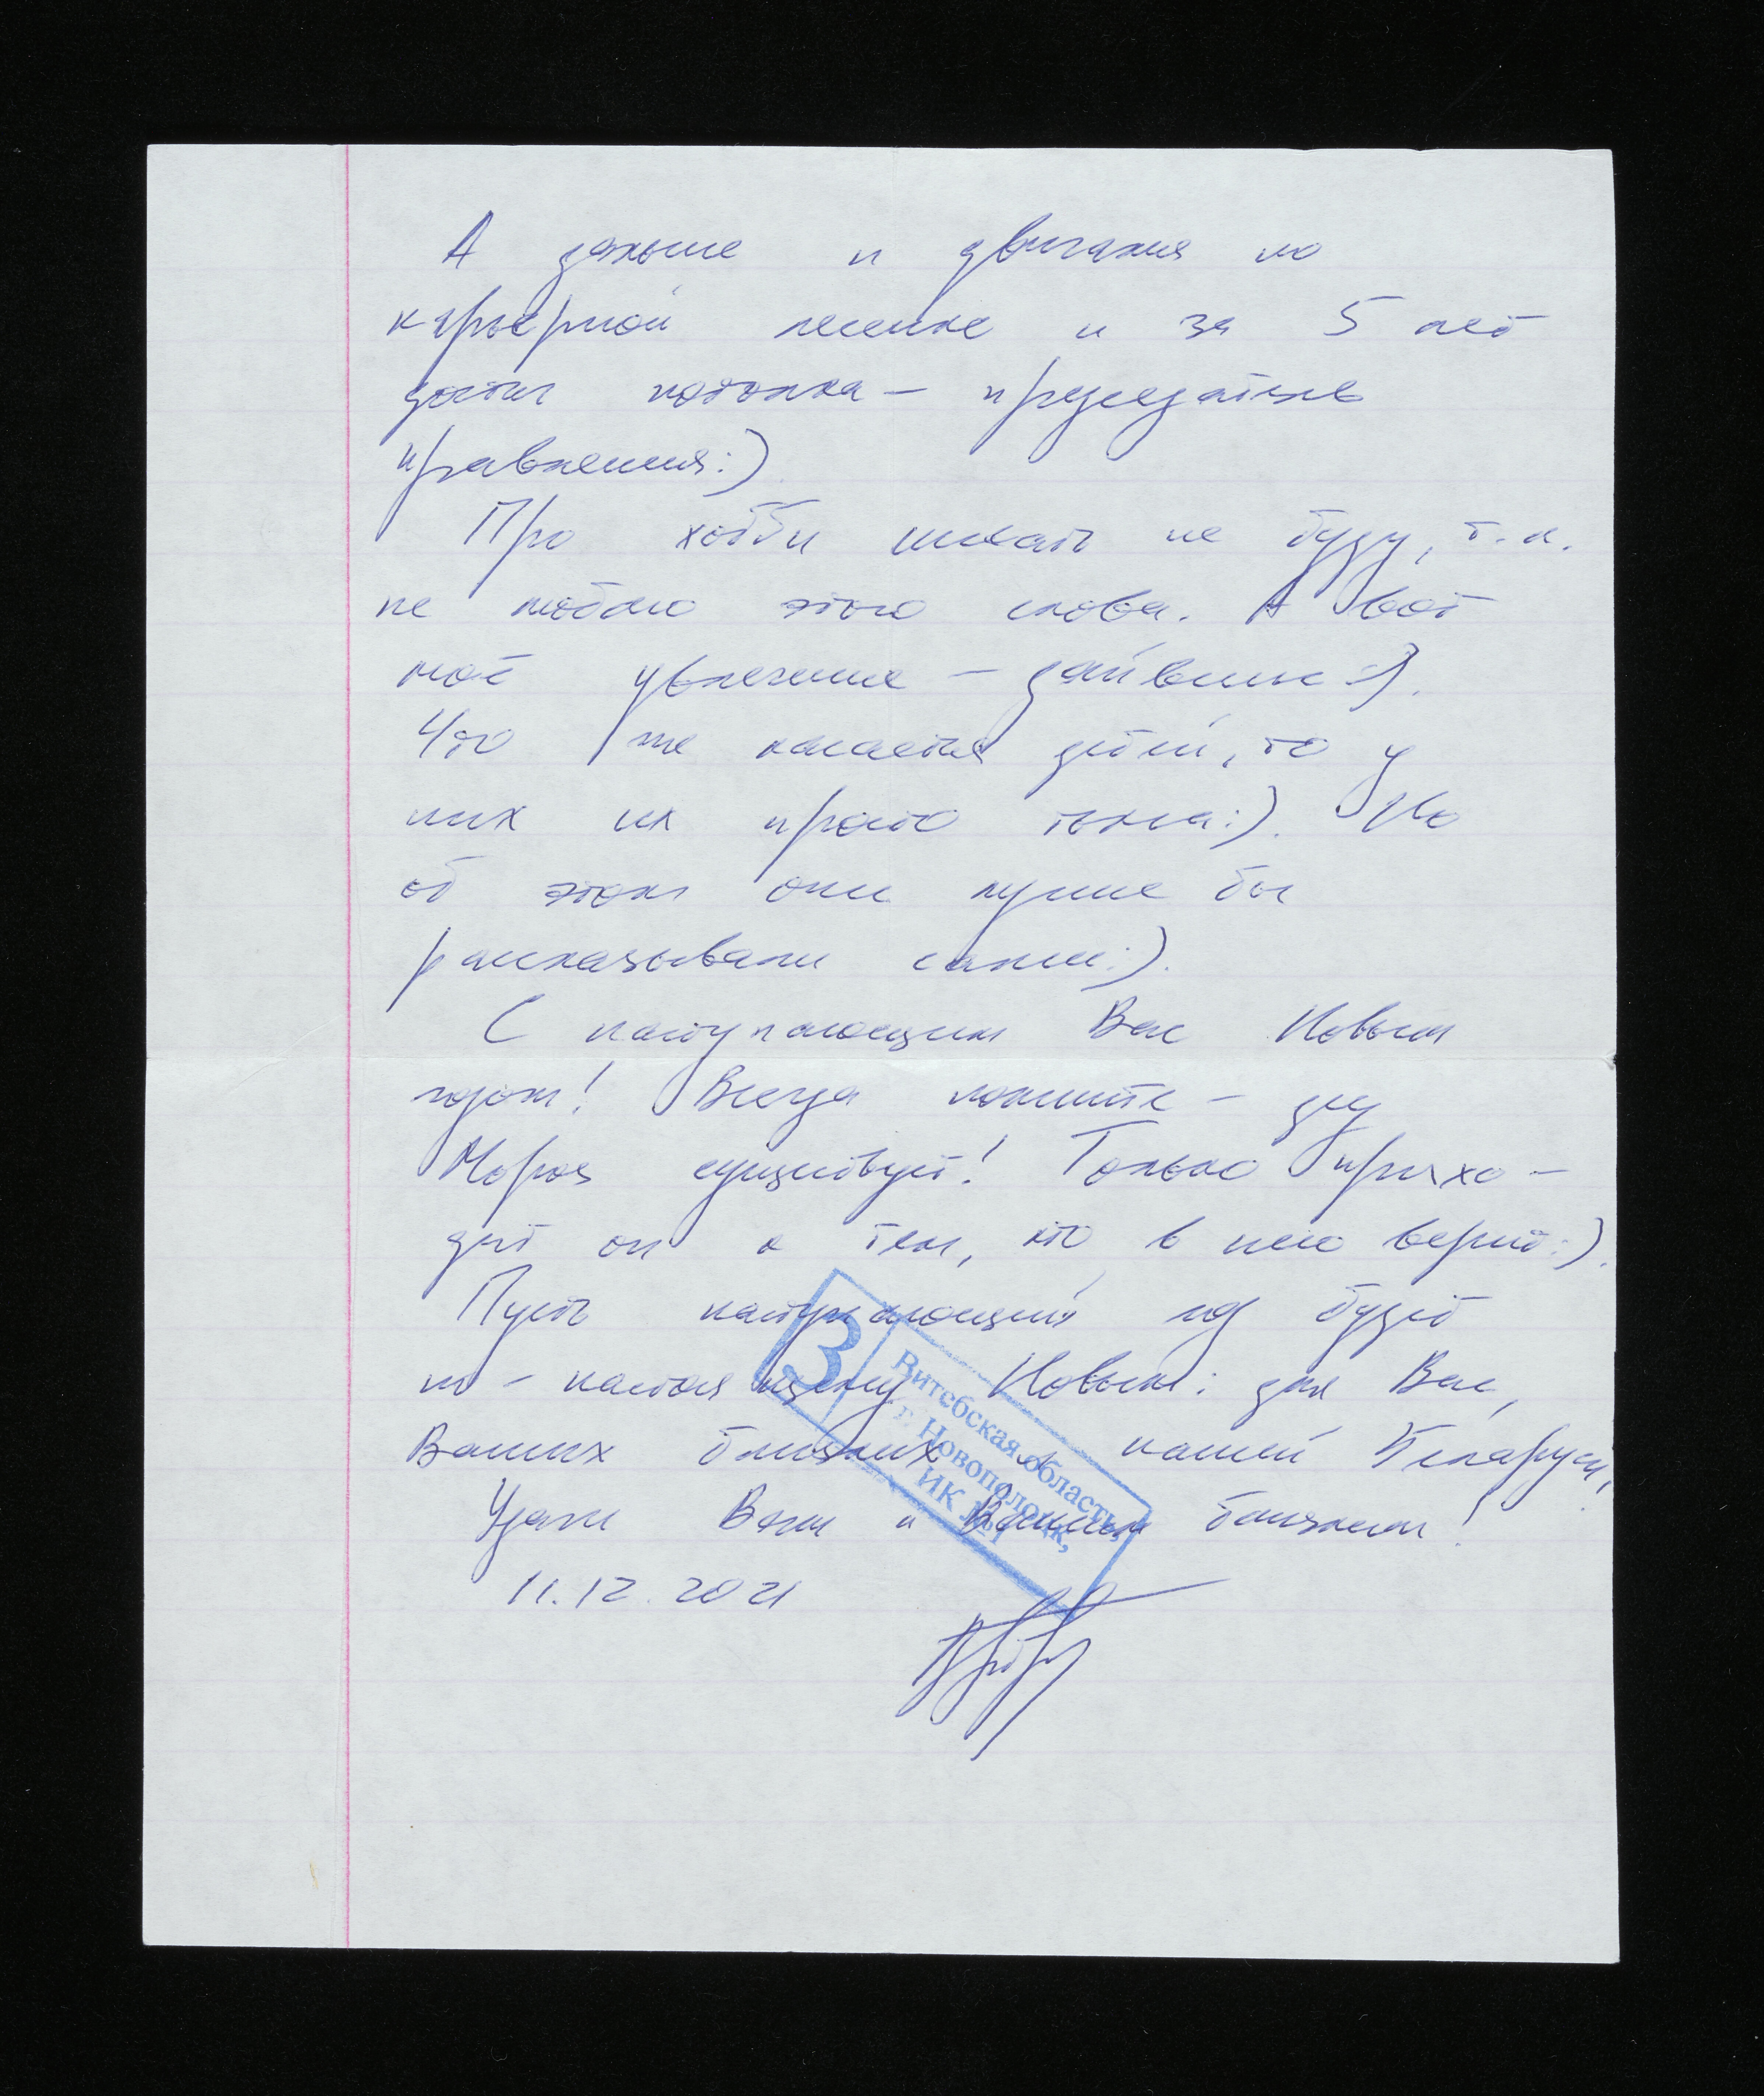 А дальше и двигался по
карьерной лесенке и за 5 лет
достиг потолка – председатель
правления:)
Про хобби писать не буду, т.к.
не люблю этого слова. А вот
моё увлечение – дайвинг:).
Что же касается детей, то у
них их просто тьма:). Но
об этом они лучше бы
рассказывали сами:).
С наступающим Вас Новым
годом! Всегда помните – дед
Мороз существует! Только прихо-
дит он к тем, кто в него верит:).
Пусть наступающий год будет
по-настоящему Новым: для Вас,
Ваших близких и нашей Беларуси!
Удачи Вам и Вашим близким!
11.12.2021
3
Витебская область,
г. Новополоцк,
ИК №1